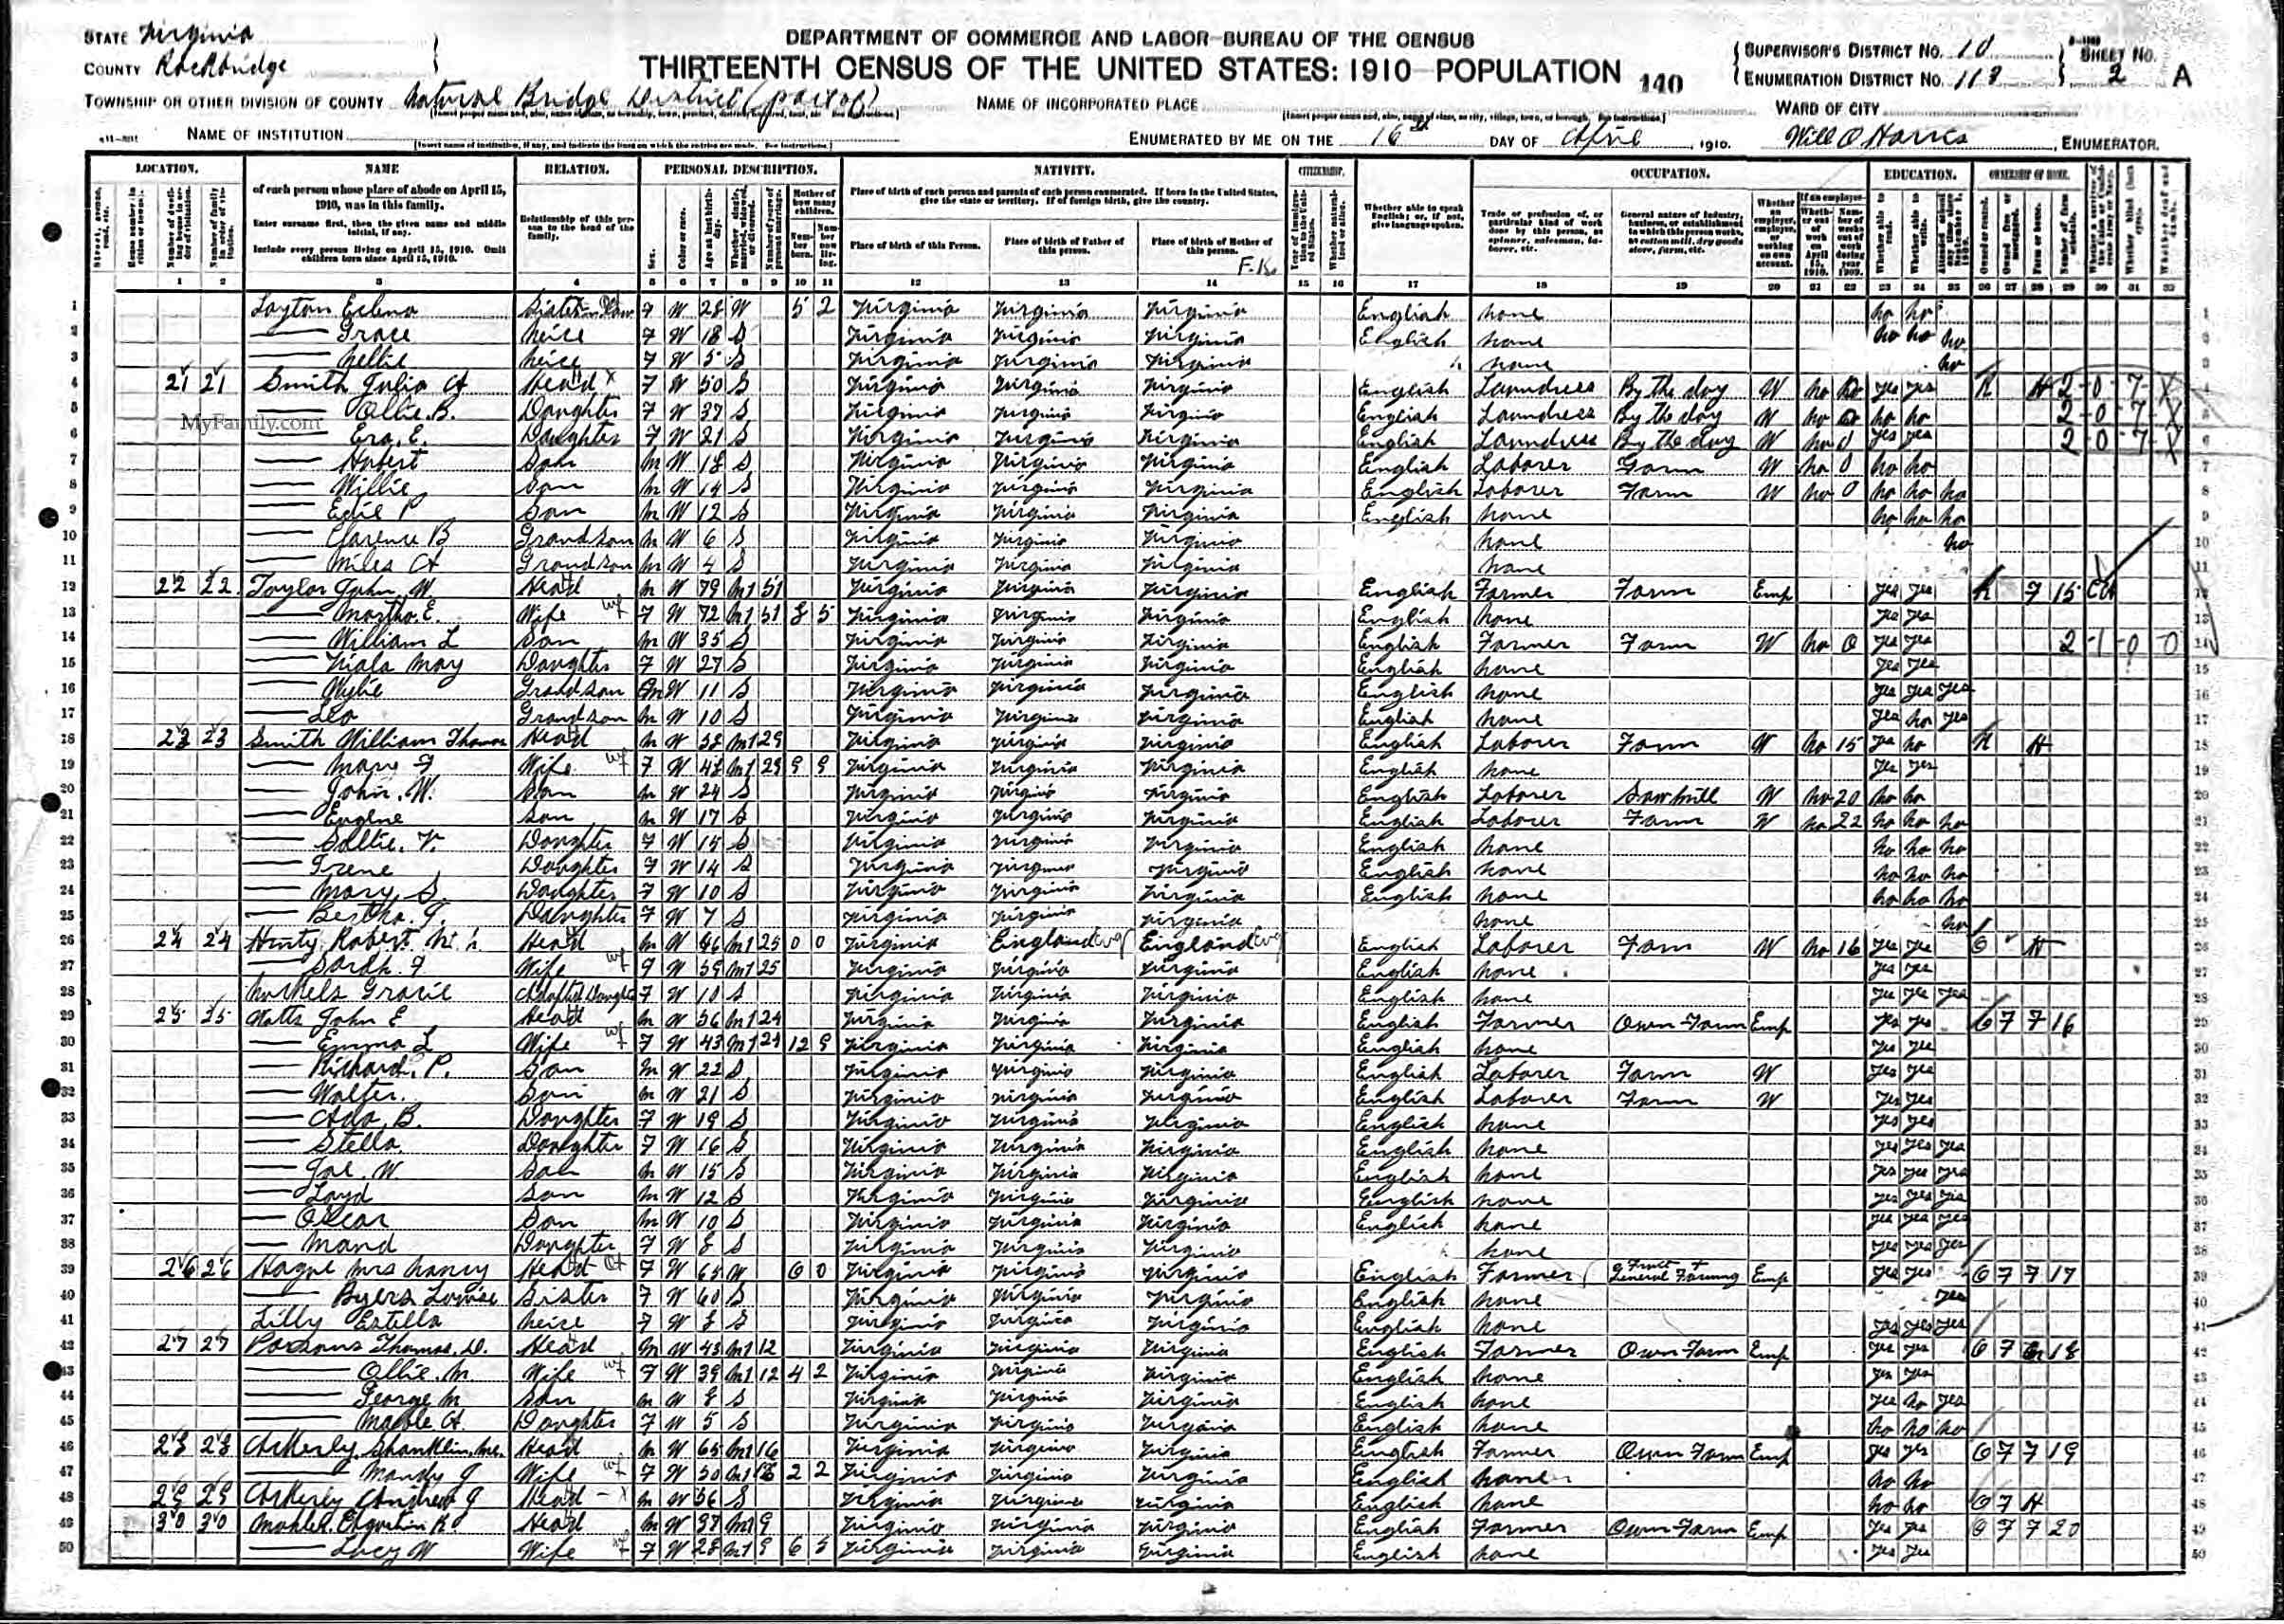 STATE Virginia
COUNTY Rockbridge
TOWNSHIP OR OTHER DIVISION OF COUNTY Natural Bridge District (part of)
NAME OF INSTITUTION
DEPARTMENT OF COMMERCE AND LABOR-BUREAU OF THE CENSUS
THIRTEENTH CENSUS OF THE UNITED STATES: 1910-POPULATION 140
NAME OF INCORPORATED PLACE
ENUMERATED BY ME ON THE 16th DAY OF April, 1910.
SUPERVISOR'S DISTRICT No. 10
ENUMERATION DISTRICT No. 113
SHEET No. 2 A
WARD OF CITY
Will O Harris, ENUMERATOR.
LOCATION. NAME RELATION. PERSONAL DESCRIPTION. NATIVITY. CITIZENSHIP. OCCUPATION. EDUCATION. OWNERSHIP OF HOME.
of each person whose place of abode on April 15, 1910, was in this family.
Enter surname first, then the given name and middle initial, if any.
Include every person living on April 15, 1910. Omit children born since April 15, 1910.
Relationship of this person to the head of the family.
Place of birth of each person and parents of each person enumerated. If born in the United States, give the state or territory. If of foreign birth, give the country.
Place of birth of this Person. Place of birth of Father of this person. Place of birth of Mother of this person.
1 2 3 4 5 6 7 8 9 10 11 12 13 14 15 16 17 18 19 20 21 22 23 24 25 26 27 28 29 30 31 32
1 Layton F W 28 W 5 2 Virginia Virginia Virginia English none no no
2 Grace Neice F W 18 S Virginia Virginia Virginia English none no no no
3 Nellie Neice F W 5 S Virginia Virginia Virginia none no
4 21 21 Smith Julia A Head F W 50 S Virginia Virginia Virginia English Laundress By the day W no yes yes R H 2-0-7-X
MyFamily.com
5 Ollie B. Daughter F W 37 S Virginia Virginia Virginia English Laundress By the day W no no no 2-0-7-X
6 Era E. Daughter F W 21 S Virginia Virginia Virginia English Laundress By the day W no 0 yes yes 2-0-7-X
7 Hubert Son M W 18 S Virginia Virginia Virginia English Laborer Farm W no 0 no no
8 Willie Son M W 14 S Virginia Virginia Virginia English Laborer Farm W no 0 no no no
9 Son M W 12 S Virginia Virginia Virginia English none no no no
10 Clarence B Grandson M W 6 S Virginia Virginia Virginia none no
11 Miles A Grandson M W 4 S Virginia Virginia Virginia none
12 22 22 Taylor John W. Head M W 79 M1 51 Virginia Virginia Virginia English Farmer Farm Emp yes yes R F 15 CA
13 Martha E. Wife F W 72 M1 51 8 5 Virginia Virginia Virginia English none yes yes
14 William L Son M W 35 S Virginia Virginia Virginia English Farmer Farm W no 0 yes yes 2-1-0-0
15 May Daughter F W 27 S Virginia Virginia Virginia English none yes yes
16 Wylie Grandson M W 11 S Virginia Virginia Virginia English none yes yes yes
17 Leo Grandson M W 10 S Virginia Virginia Virginia English none yes no yes
18 23 23 Smith William Thomas Head M W M1 29 Virginia Virginia Virginia English Laborer Farm W no 15 no R H
19 Mary F Wife F W 48 M1 29 9 9 Virginia Virginia Virginia English none yes yes
20 John W. Son M W 24 S Virginia Virginia Virginia English Laborer Sawmill W no 20 no no
21 Eugene Son M W 17 S Virginia Virginia Virginia English Laborer Farm W no 22 no no no
22 Sallie V. Daughter F W 15 S Virginia Virginia Virginia English none no no no
23 Irene Daughter F W 14 S Virginia Virginia Virginia English none no no no
24 Mary S Daughter F W 10 S Virginia Virginia Virginia English none no no no
25 Bertha J. Daughter F W 7 S Virginia Virginia Virginia none no
26 24 24 Robert Head M W 46 M1 25 0 0 Virginia England Eng England Eng English Laborer Farm W no 16 yes yes O H
27 Sarah F Wife F W 59 M1 25 Virginia Virginia Virginia English none yes yes
28 Gracie Adopted Daughter F W 10 S Virginia Virginia Virginia English none yes yes yes
29 25 25 Watts John E Head M W 56 M1 24 Virginia Virginia Virginia English Farmer Own Farm Emp yes yes O F F 16
30 Emma L Wife F W 43 M1 24 12 9 Virginia Virginia Virginia English none yes yes
31 Richard P. Son M W 22 S Virginia Virginia Virginia English Laborer Farm W yes yes
32 Walter. Son M W 21 S Virginia Virginia Virginia English Laborer Farm W yes yes
33 Ada B. Daughter F W 19 S Virginia Virginia Virginia English none yes yes
34 Stella Daughter F W 16 S Virginia Virginia Virginia English none yes yes yes
35 Joe W. Son M W 15 S Virginia Virginia Virginia English none yes yes yes
36 Loyd Son M W 12 S Virginia Virginia Virginia English none yes yes yes
37 Oscar Son M W 10 S Virginia Virginia Virginia English none yes yes yes
38 Maud Daughter F W 8 S Virginia Virginia Virginia none yes yes yes
39 26 26 Mrs Nancy Head F W 65 W 0 0 Virginia Virginia Virginia English Farmer Fruit + General Farming Emp yes yes O F F 17
40 Byers Louise Sister F W 60 S Virginia Virginia Virginia English none yes
41 Lilly Estella Neice F W 8 S Virginia Virginia Virginia English none yes yes yes
42 27 27 Parsons Thomas D. Head M W 43 M1 12 Virginia Virginia Virginia English Farmer Own Farm Emp yes yes O F 18
43 Ollie M Wife F W 39 M1 12 4 2 Virginia Virginia Virginia English none yes yes
44 George M Son M W 8 S Virginia Virginia Virginia English none yes no yes
45 Mable A. Daughter F W 5 S Virginia Virginia Virginia English none no no no
46 28 28 Akerly Shanklin Mc. Head M W 65 M1 16 Virginia Virginia Virginia English Farmer Own Farm Emp yes yes O F F 19
47 Mandy J Wife F W 50 M1 16 2 2 Virginia Virginia Virginia English none no no
48 29 29 Akerly Andrew J Head M W 56 S Virginia Virginia Virginia English none no no O F H
49 30 30 Head M W M1 9 Virginia Virginia Virginia English Farmer Own Farm Emp yes yes O F F 20
50 Lucy W Wife F W 28 M1 9 6 5 Virginia Virginia Virginia English none yes yes